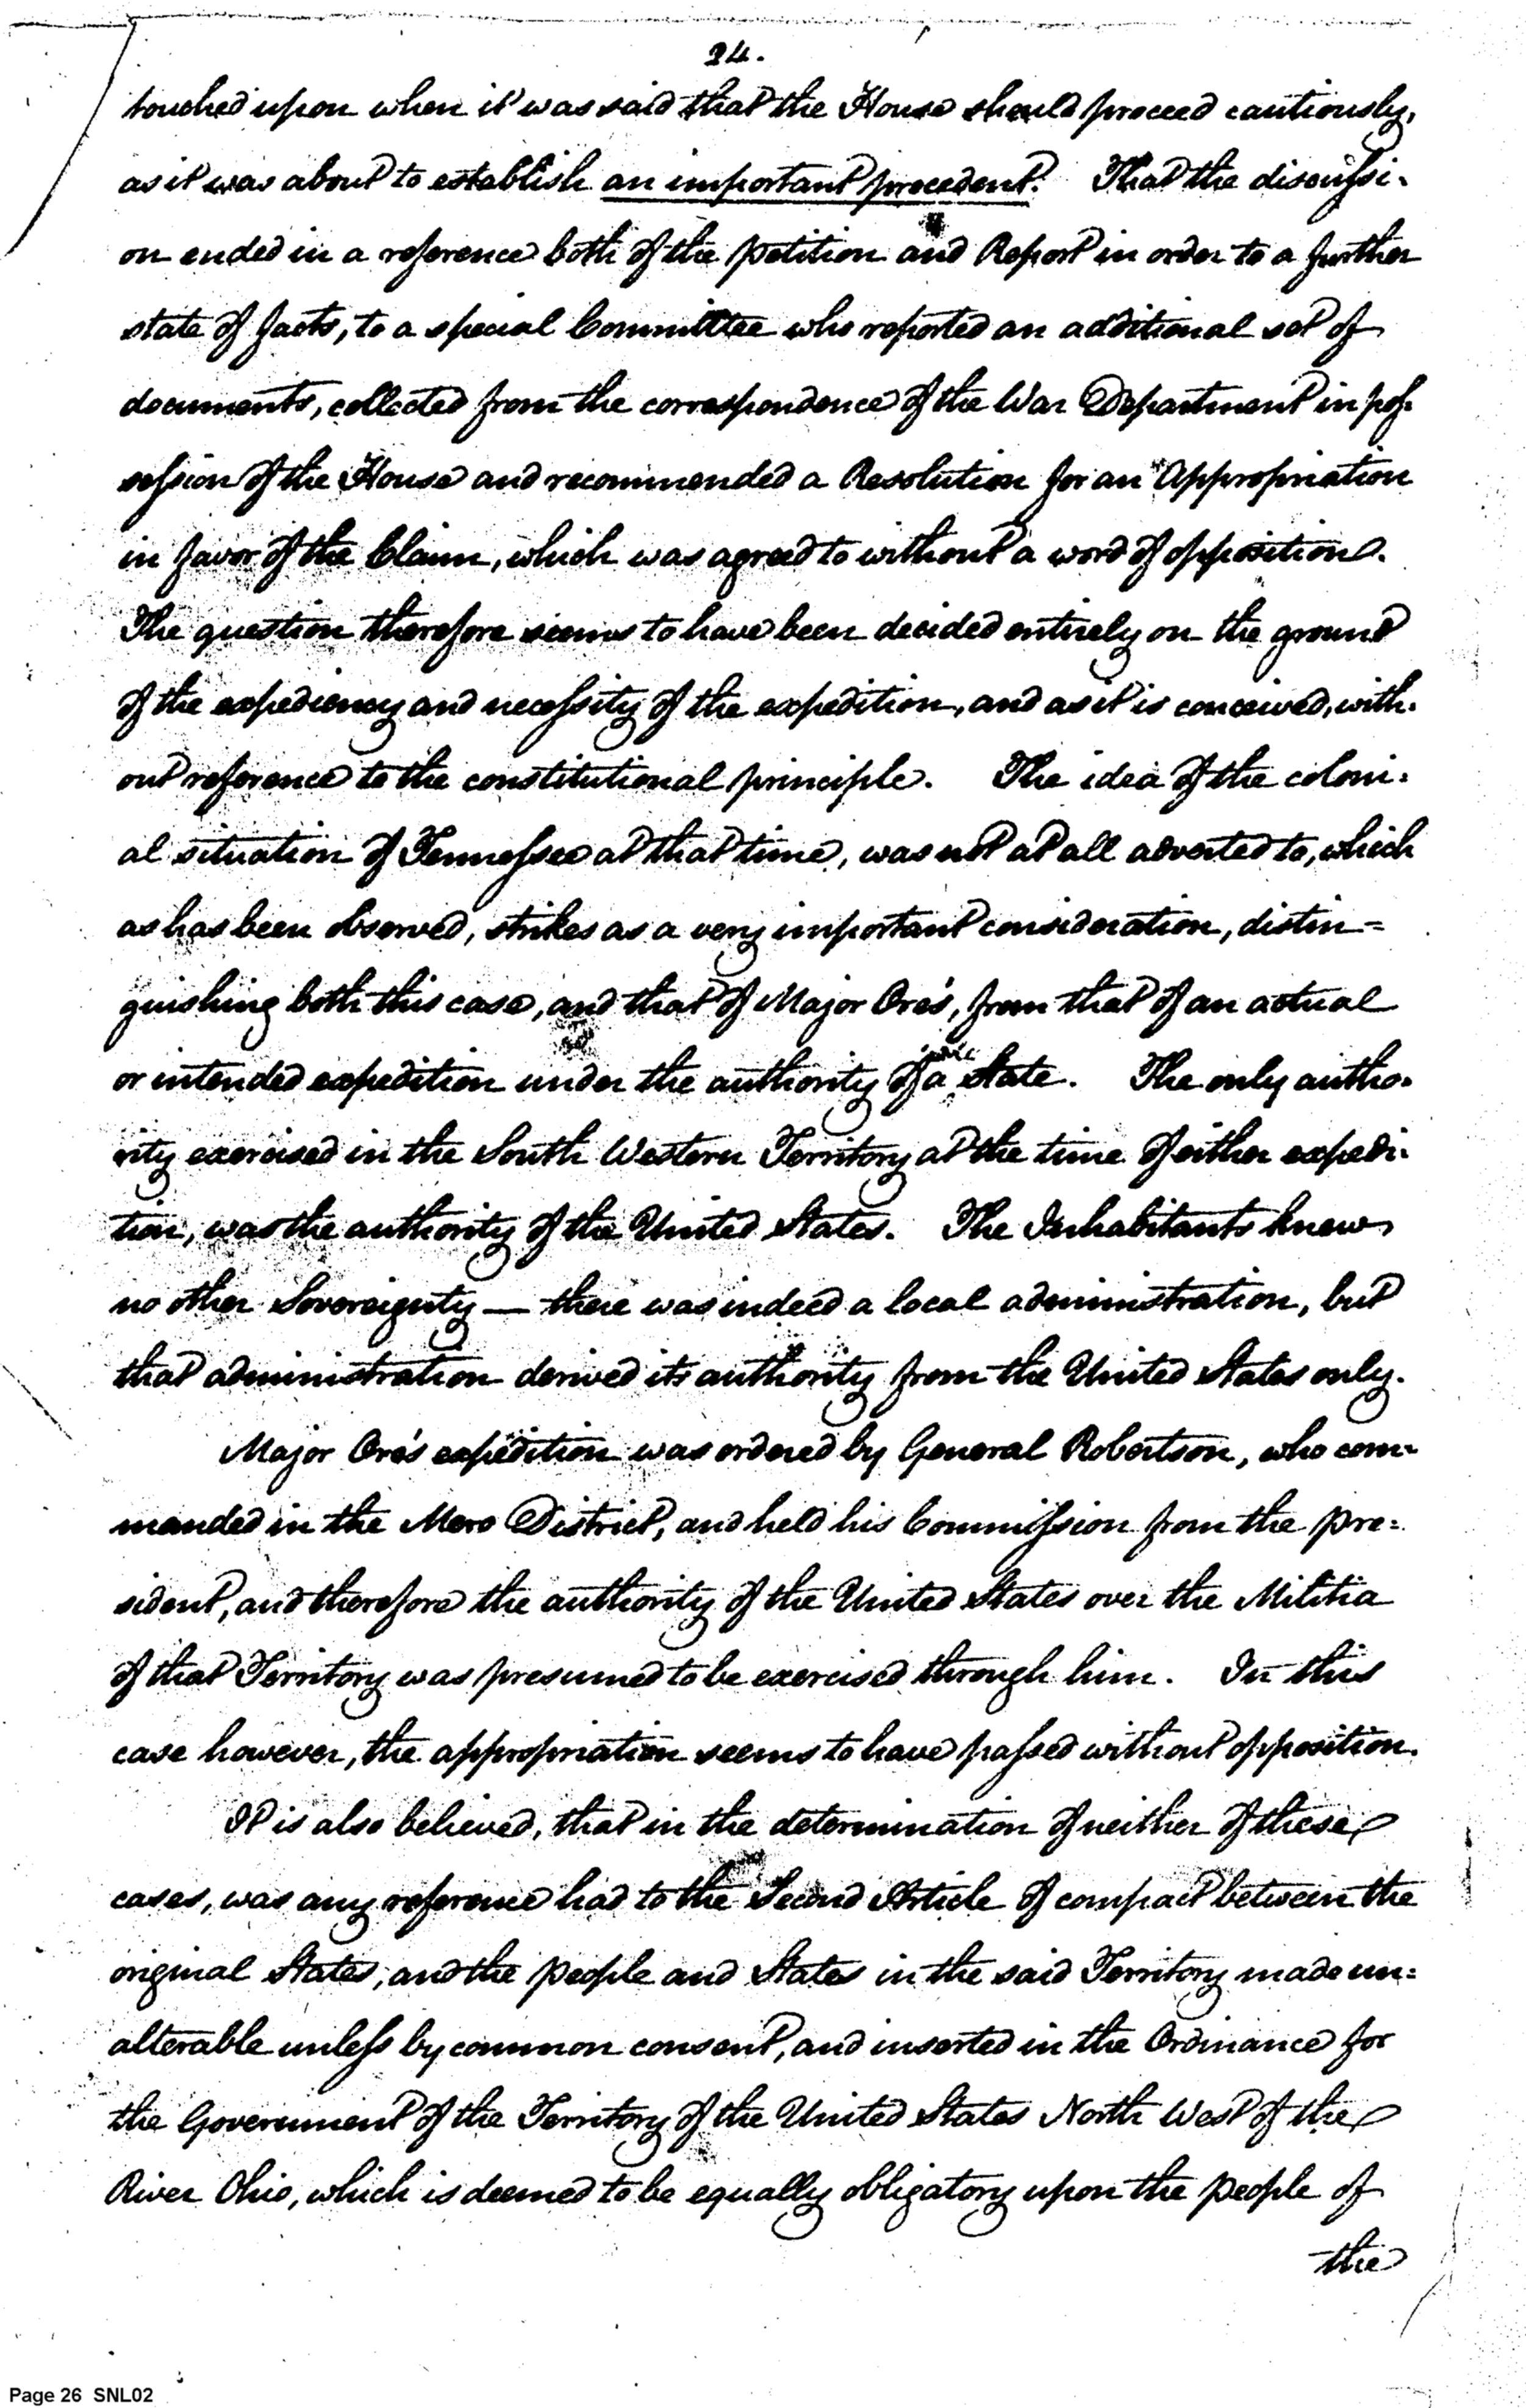 24.
touched upon when it was said that the House should proceed cautiously,
as it was about to establish an important precedent. That the discussi-
on ended in a reference both of the petition and Report in order to a further
state of facts, to a special Committee who reported an additional set of
documents, collected from the correspondence of the War Department in pos-
session of the House and recommended a Resolution for an Appropriation
in favor of the Claim, which was agreed to without a word of opposition.
The question therefore seems to have been decided entirely on the ground
of the expediency and necessity of the expedition, and as it is conceived, with-
out reference to the constitutional principle. The idea of the coloni-
al situation of Tennessee at that time, was not at all adverted to, which
as has been observed, strikes as a very important consideration, distin=
guishing both this case, and that of Major Ore's, from that of an actual
or intended expedition under the authority of a State. The only autho-
rity exercised in the South Western Territory at the time of either expedi-
tion, was the authority of the United States. The Inhabitants knew
no other Sovereignty — there was indeed a local administration, but
that administration derived its authority from the United States only.
Major Ore's expedition was ordered by General Robertson, who com-
manded in the Mero District, and held his Commission from the Pre=
sident, and therefore the authority of the United States over the Militia
of that Territory was presumed to be exercised through him. In this
case however, the appropriation seems to have passed without opposition.
It is also believed, that in the determination of neither of these
cases, was any reference had to the Second Article of compact between the
original States, and the people and States in the said Territory made un=
alterable unless by common consent, and inserted in the Ordinance for
the Government of the Territory of the United States North West of the
River Ohio, which is deemed to be equally obligatory upon the people of
the
Page 26 SNL02